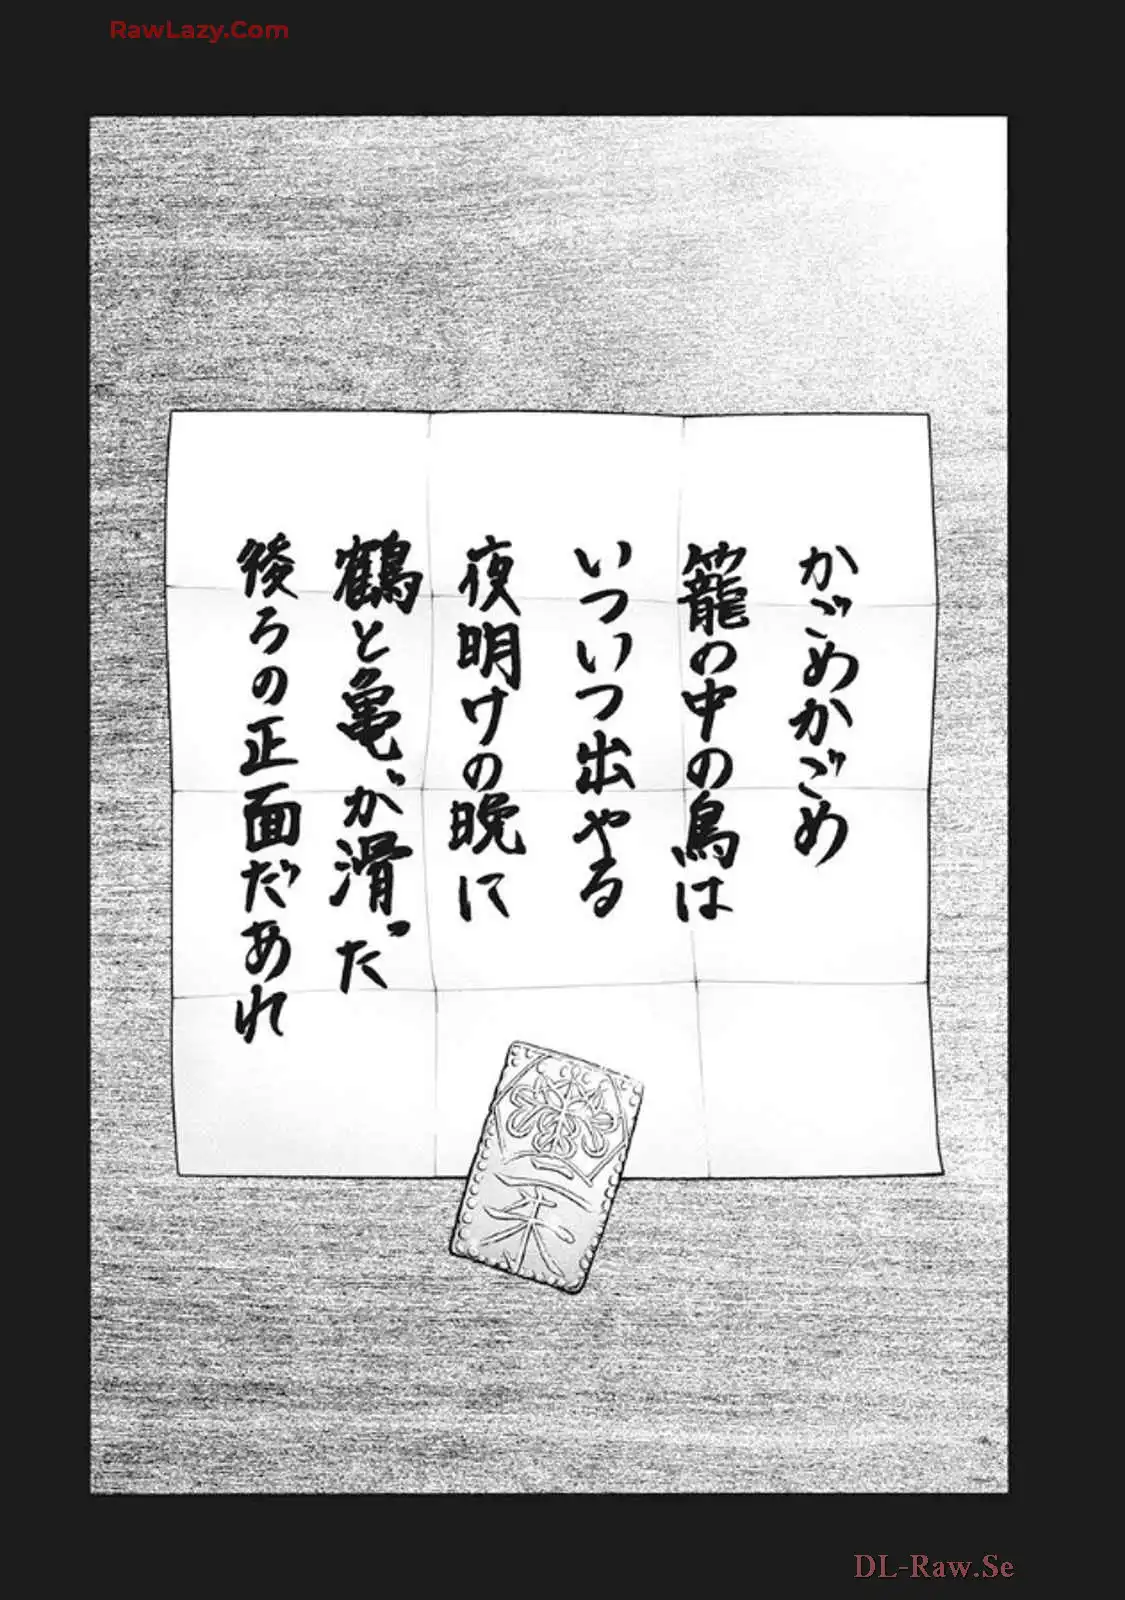 RawLazy.Com
かごめかごめ
籠の中の鳥は
いついつ出やる
夜明けの晩に
鶴と亀が滑った
後ろの正面だあれ
一朱
DL-Raw.Se